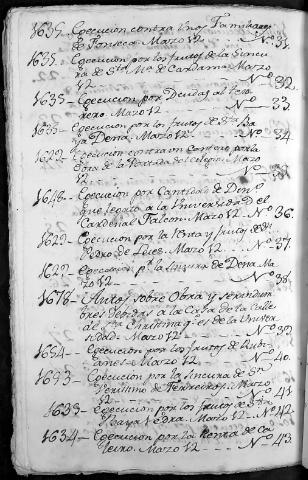 1635 - Egecucion contra Unos Familiares
de Fonseca. Marzo 12 - Nº 31.
1635 - Egecucion por los frutos de la Sinecu
ra de Sta. Mª de Cardama. Marzo
12 - Nº 32.
1635 - Egecucion por Deudas al Teso
rero. Marzo 12 - Nº 33.
1635 - Egecucion por los frutos de
Dena. Marzo 12 - Nº 34
1622 - Egecucion contra un Conforme por la
del colegio. Marzo
12
1646 - Egecucion por Cantidad de Dinº
que legato a la Universidad el
Cardenal Falcon. Marzo 12. Nº 36.
1623 - Egecucion por la Renta y frutos de Sn
Pedro de Marzo 12 Nº 37.
1622 - Egecucion pr. la Sinecura de Dena. Ma
rzo 12 - Nº 38.
1678 - Autos sobre Obra y servidum
bres devidas a la Casa de la Calle
al qe es de la Univer
sidad - Marzo 12 - Nº 39.
1654 - Egecucion por los frutos de Rubi
anes - Marzo 12 - Nº 40.
1633 - Egecucion por la Sinecura de Sn
Verisimo de Ferreiros. Marzo
12 - Nº 41.
1635 - Egecucion por los frutos de Sta.
Baya Vedra. Marzo 12 - Nº 42.
1634 - Egecucion por la Renta de Ca
leiro. Marzo 12 - Nº 43.